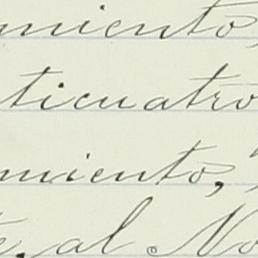 miento,
ticuatro
miento,
te, al No